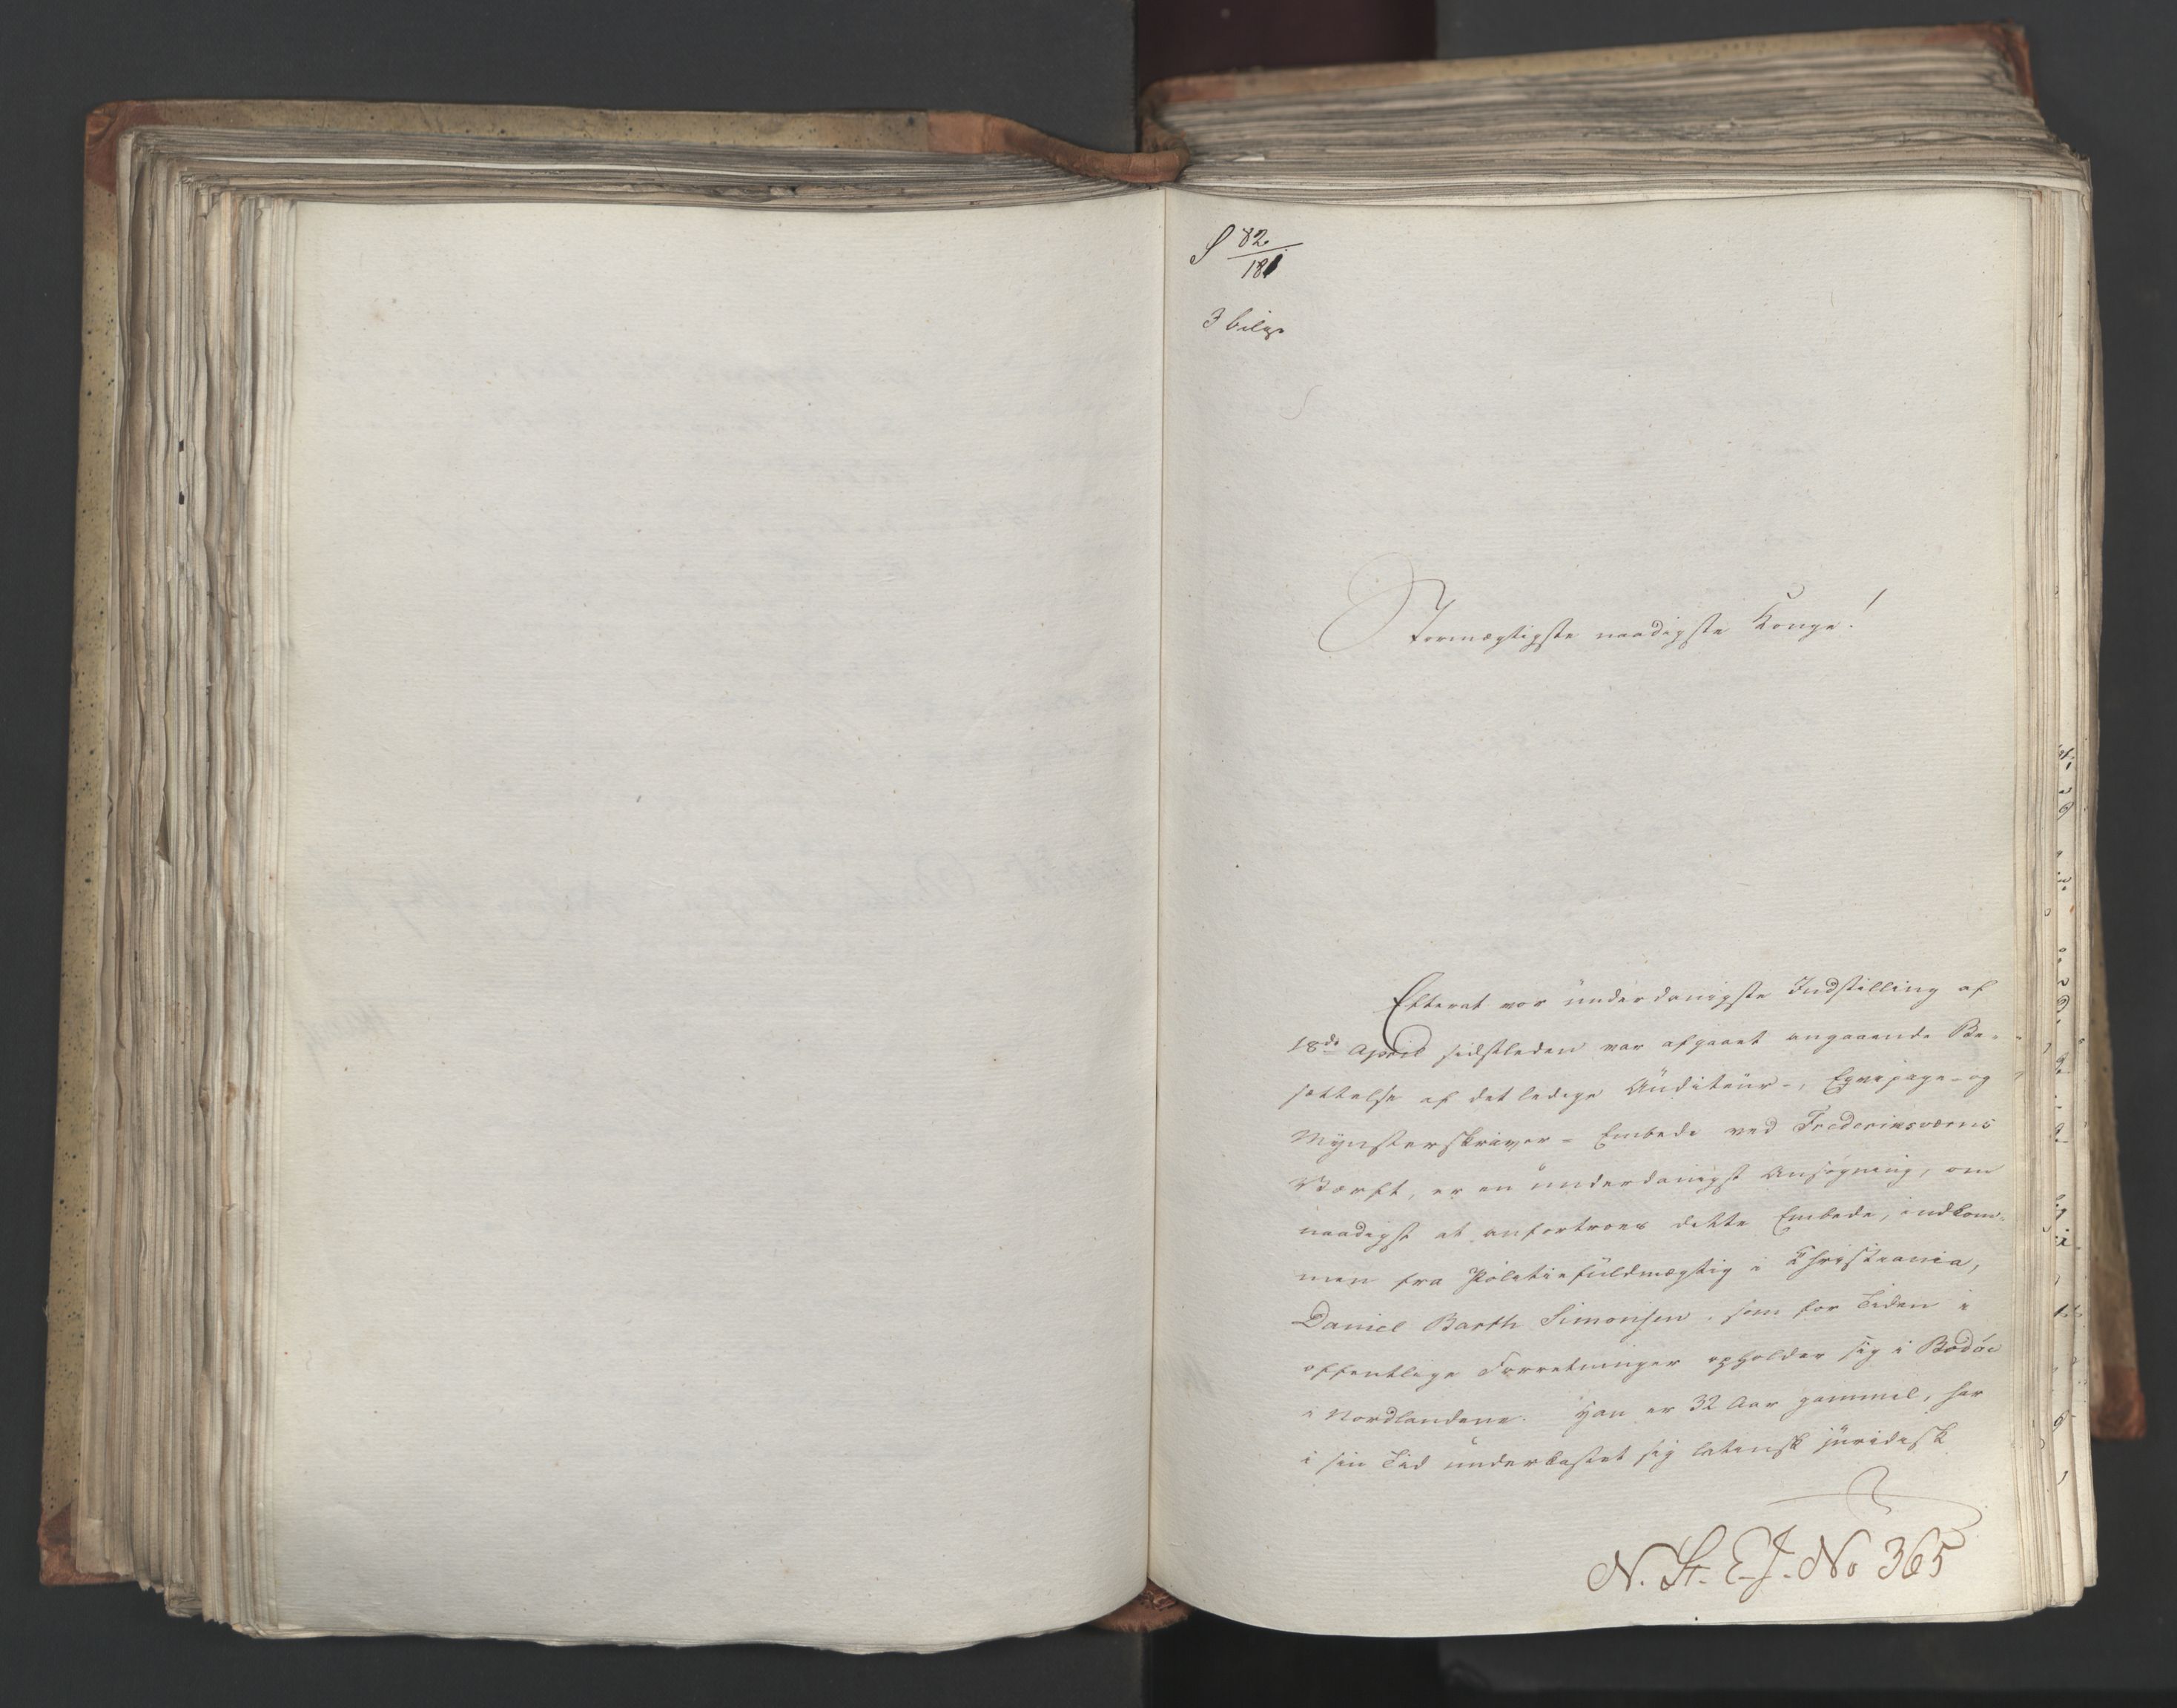 S 82/181
3 bilag
Stormægtigste naadigste Konge!
Efterat vor underdanigste Indstilling af
18de April sidstleden var afgaaet angaaende Be-
sættelse af det ledige Auditeur-, Eqvipage- og
Mynsterskriver- Embede ved Frederiksværns
Værft, er en underdanigst Ansøgning, om
naadigst at anfortroes dette Embede, indkom-
men fra Politiefuldmægtig i Christiania,
Daniel Barth Simonsen, som for Tiden i
offentlige Forretninger opholder sig i Bodöe
i Nordlandene. Han er 32 Aar gammel, har
i sin Tid underkastet sig latinsk juridisk
N. St. E. J. No 365